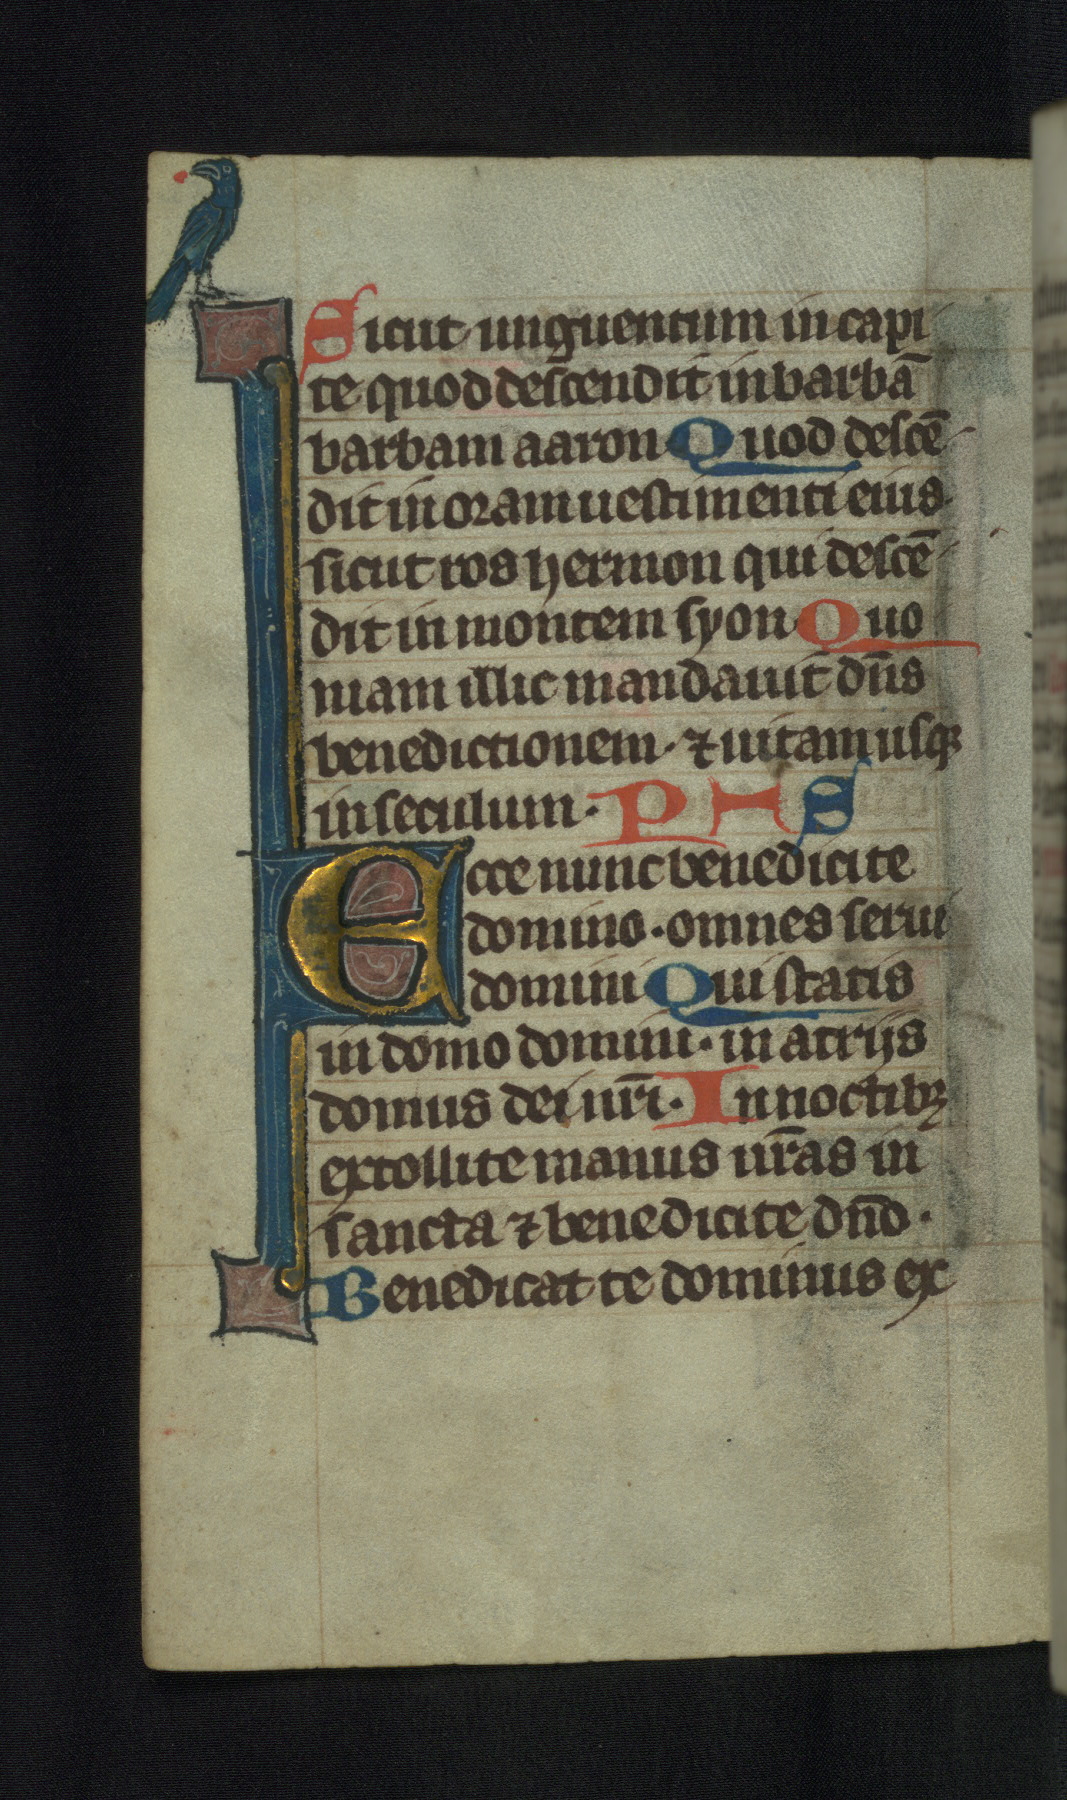 Sicut unguentum in capi
te quod descendit in barbā
barbam aaron Quod descē-
dit in oram uestimenti eius
sicut ros hermon qui descē-
dit in montem syon Quo
niam illic mandauit dn̄s
benedictionem · ⁊ uitam usqꝫ
in seculum · PHS
Ecce nunc benedicite
domino · omnes serui
domini Qui statis
in domo domini · in atrijs
domus dei nr̄i · In noctibꝫ
extollite manus ur̄as in
sancta ⁊ benedicite dn̄o ·
Benedicat te dominus ex